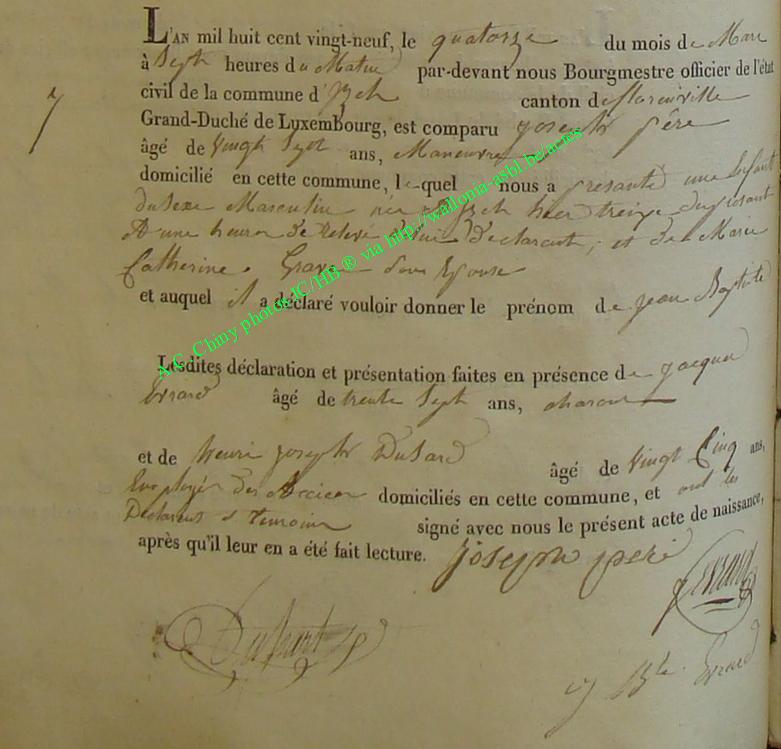 L'AN mil huit cent vingt-neuf, le quatorze du mois de Mars
à Sept heures du Matin par-devant nous Bourgmestre officier de l'état
7
civil de la commune d'Izel canton de florenville
Grand-Duché de Luxembourg, est comparu joseph pére
âgé de vingt Sept ans, Maneuvre
domicilié en cette commune, lequel nous a présanté une Enfant
du sexe Masculin née a Izel hier treize du présant
A une heure de relevé de lui Déclarant, et de Marie
Catherine Grave Son Epouse
et auquel il a déclaré vouloir donner le prénom de jean Baptiste
A.G. Chiny photos IC/HB ® via http://wallonia-asbl.be/actes
Lesdites déclaration et présentation faites en présence de jacques
Evrard âgé de trente Sept ans, charon
et de henri joseph Dusard âgé de vingt Cinq ans,
Employé des Accices domiciliés en cette commune, et ont les
Declarent & temoins signé avec nous le présent acte de naissance,
après qu'il leur en a été fait lecture. joseph peré
j Evrard
j Bte Evrard